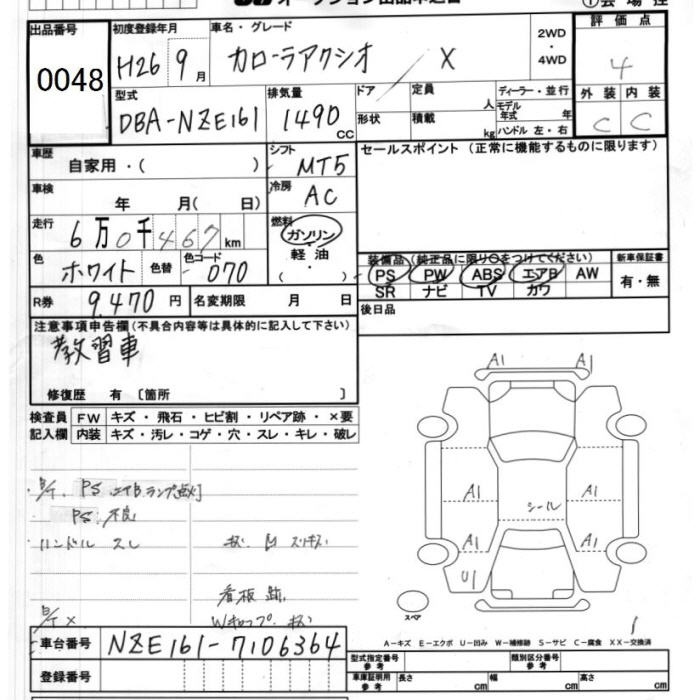 オークション出品申込書
①会場控
出品番号
0048
初度登録年月
H26 9月
車名・グレード
カローラアクシオ / X
2WD
・
4WD
評価点
4
外装 内装
C C
型式
DBA-NZE161
排気量
1490 CC
ドア
定員
人
形状
積載
kg
ディーラー・並行
モデル年式 年
ハンドル 左・右
車歴
自家用・( )
シフト
MT5
セールスポイント (正常に機能するものに限ります)
車検
年 月( 日)
冷房
AC
走行
6万0千467km
燃料
ガソリン
・
軽油
( )
色
ホワイト
色替
色コード
070
装備品 (純正品に限り○をつけてください)
PS PW ABS エアB AW
SR ナビ TV カワ
新車保証書
有・無
R券 9,470円
名変期限 月 日
後日品
注意事項申告欄(不具合内容等は具体的に記入して下さい)
教習車
修復歴 有 〔箇所 〕
検査員記入欄
FW キズ・飛石・ヒビ割・リペア跡・×要
内装 キズ・汚レ・コゲ・穴・スレ・キレ・破レ
PS エアB ランプ点灯
PS 不良
ハンドル スレ
看板跡
A1 A1
A1 A1
シール
A1 A1
U1
スペア
A-キズ E-エクボ U-凹み W-補修跡 S-サビ C-腐食 XX-交換済
車台番号 NZE161-7106364
登録番号
型式指定番号 参考
類別区分番号 参考
車庫証明用 参考
長さ cm
幅 cm
高さ cm